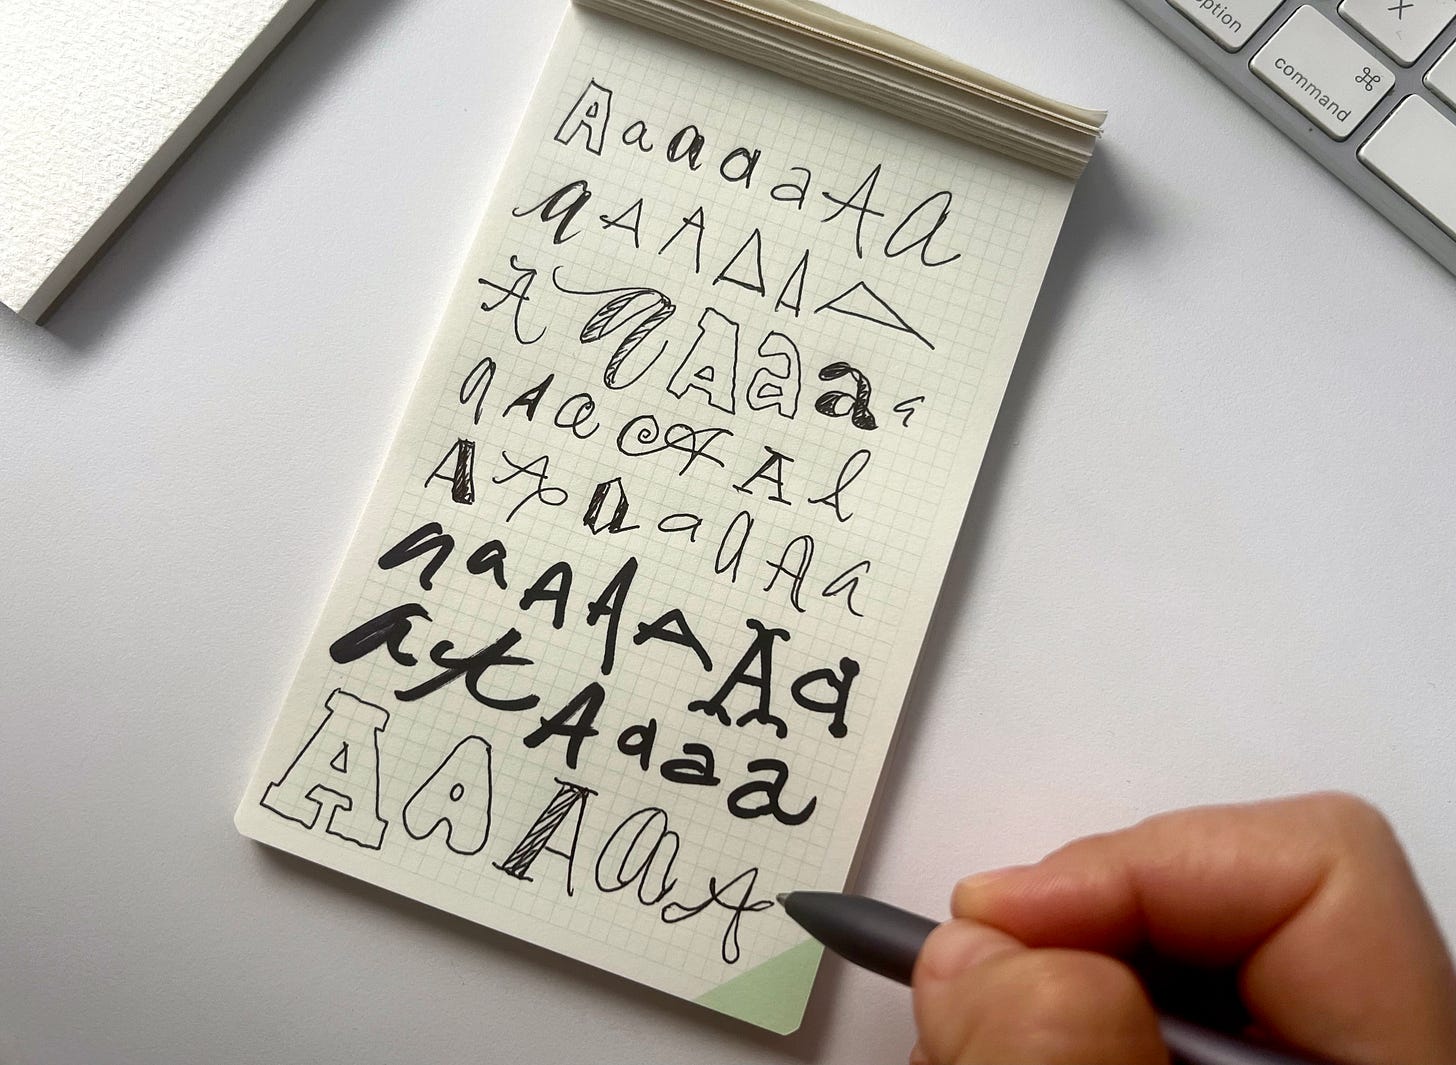 A a a a a A a
a A A A A A
A a A a a a
a A a A A a
A A a a a A a
a a A A A A a
a A A a a a
A A A a A
option
X
command ⌘